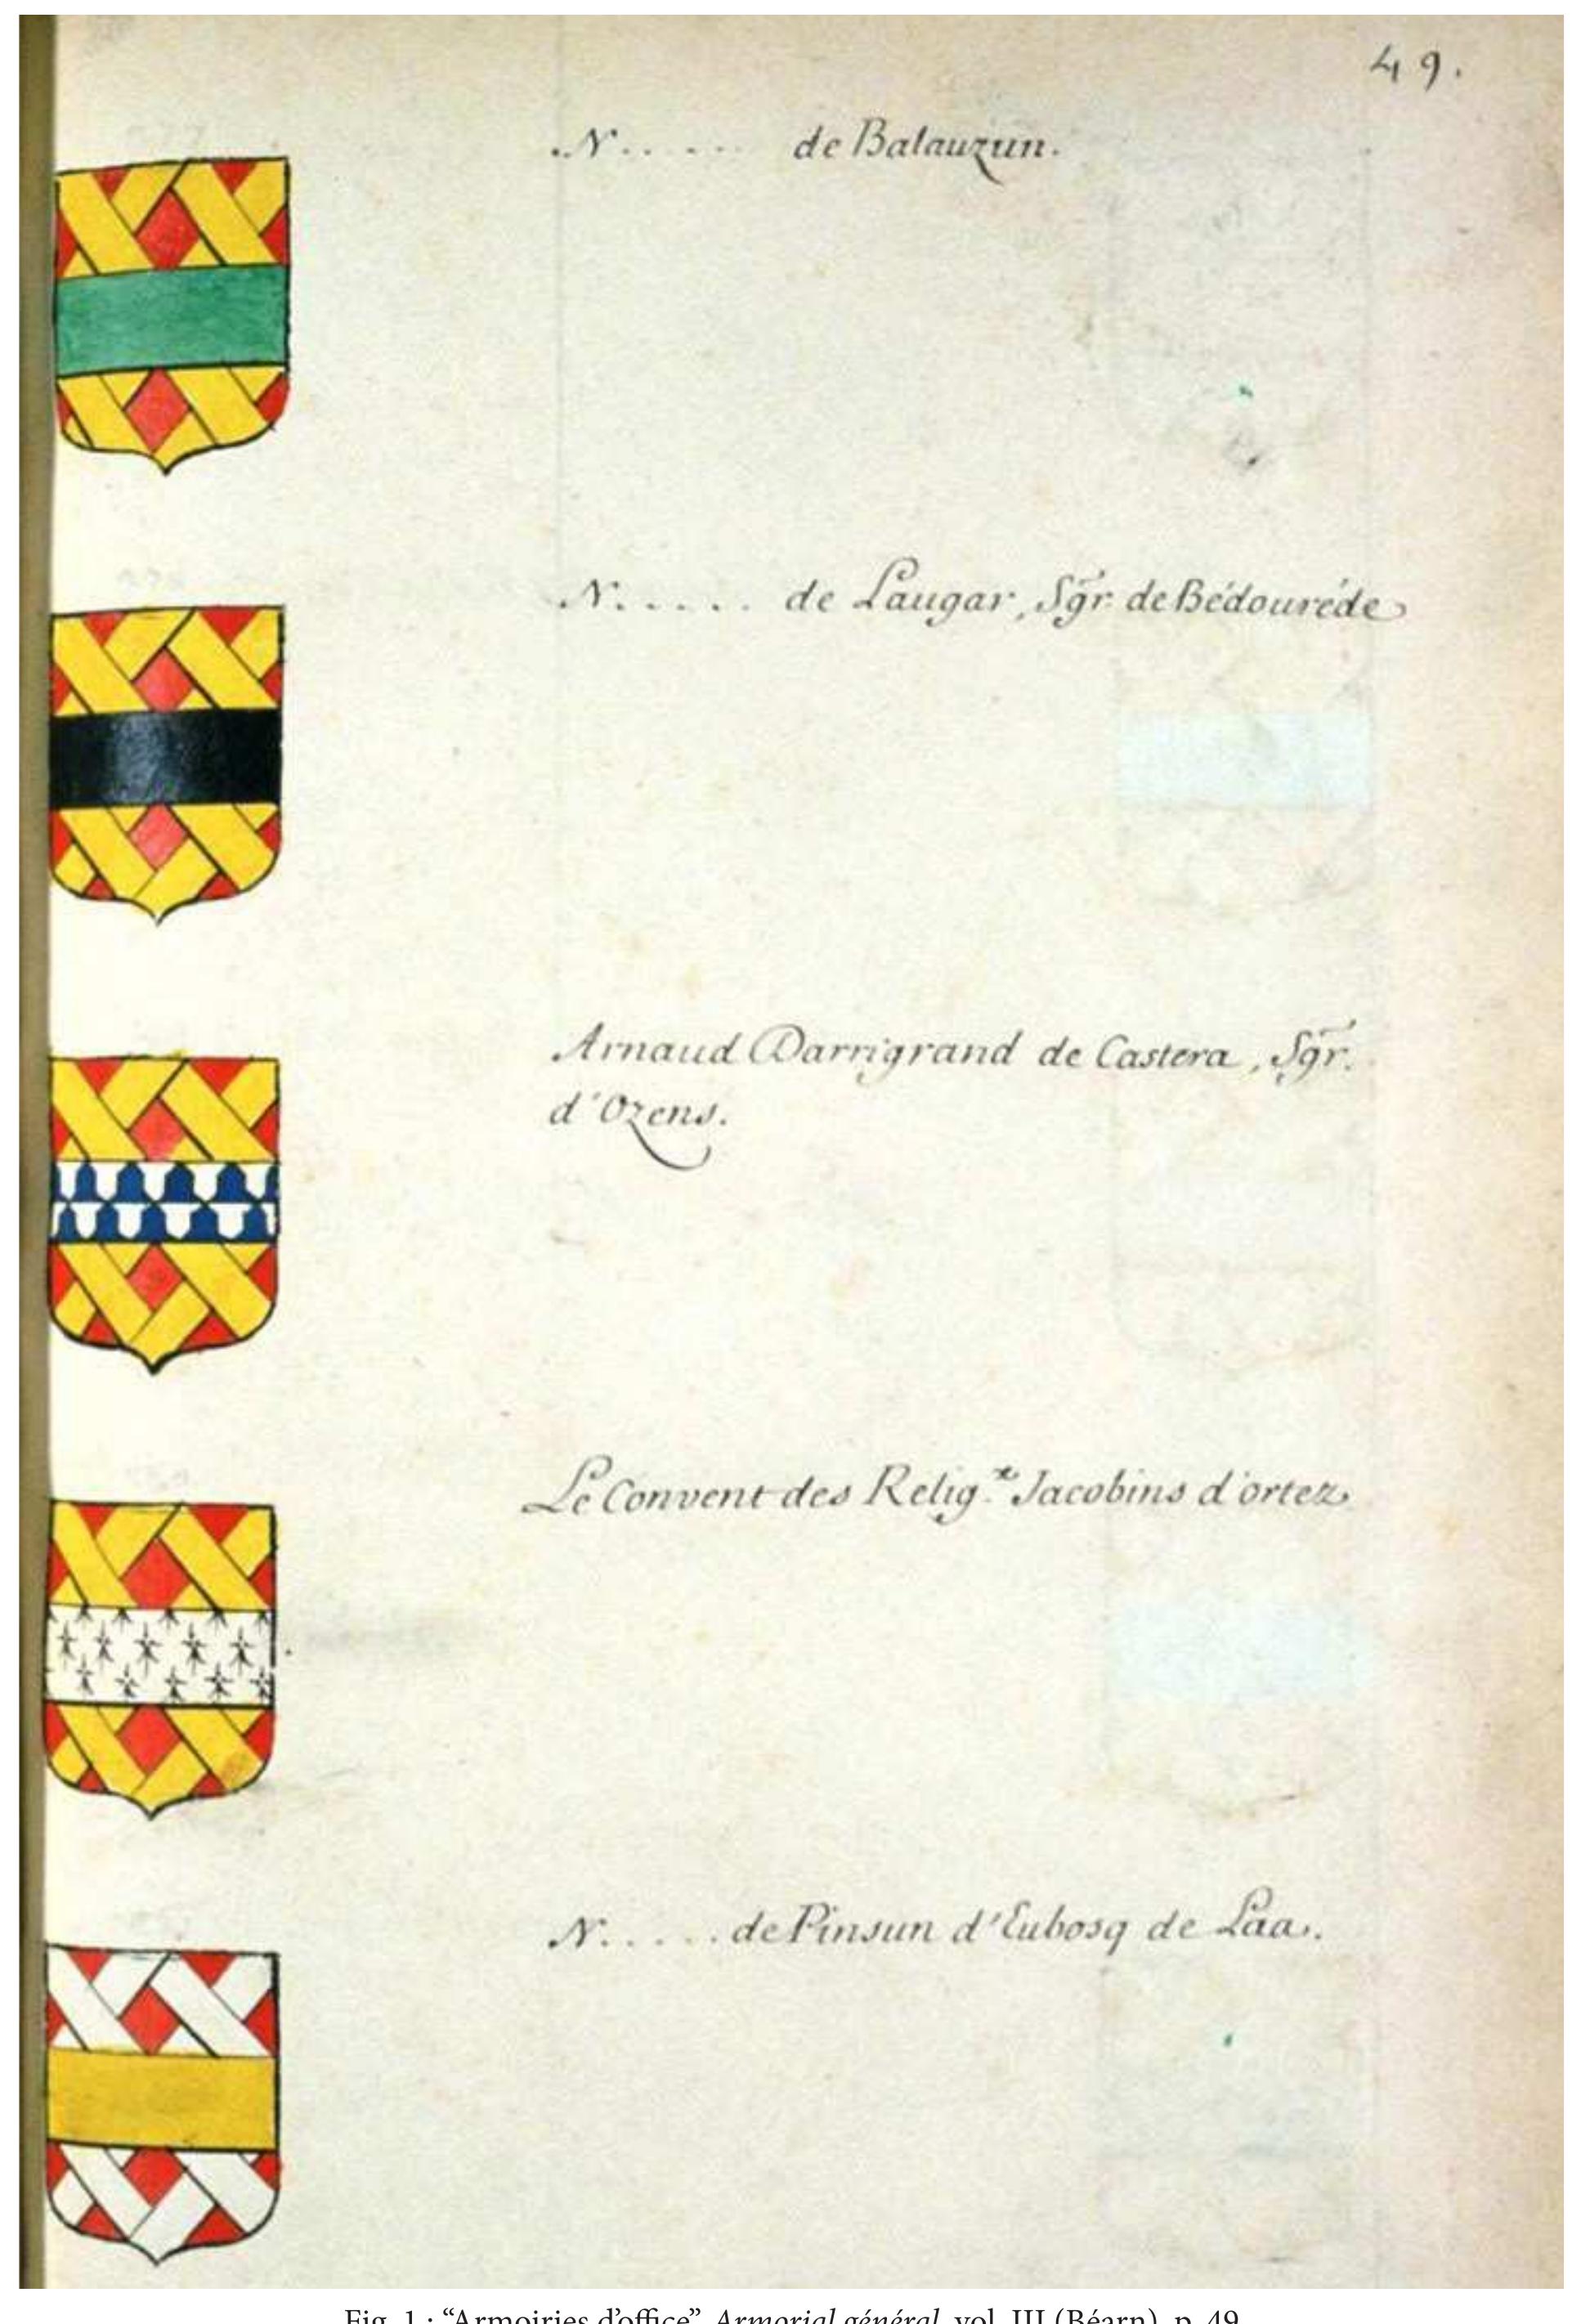 49.
N...... de Balauzun.
N..... de Laugar, Sgr. de Bédouréde
Arnaud Darrigrand de Castera, Sgr.
d'Ozens.
Le Convent des Relig.x Jacobins d'ortez
N..... de Pinsun d'Eubosq de Laa.
Fig. 1 : “Armoiries d’office”, Armorial général, vol. III (Béarn), p. 49